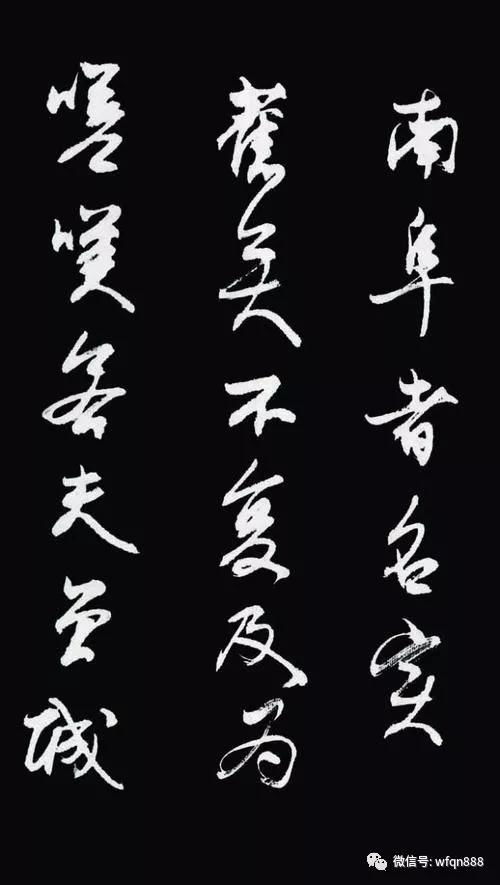 南阜者名实
舊矣不复及为
嗟嘆若夫曾城
微信号: wfqn888